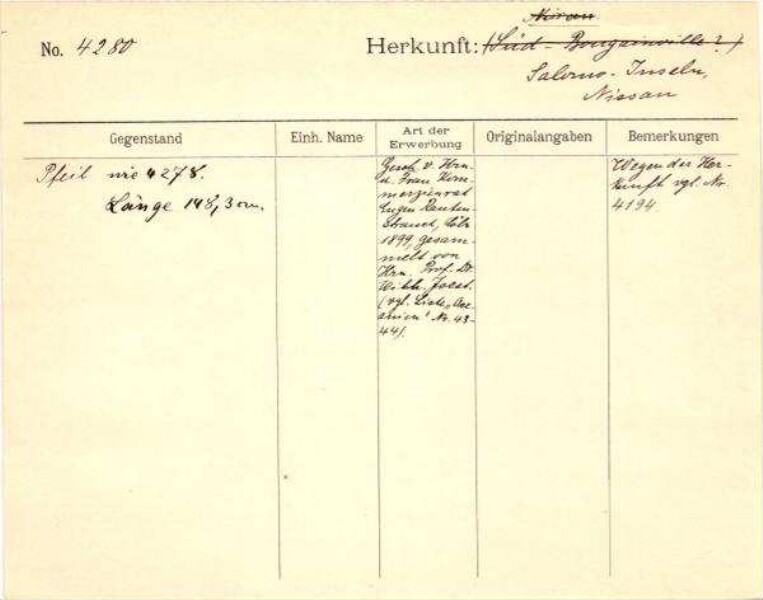 Nissan
No. 4280
Herkunft: (Süd-Bougainville?)
Salomo-Inseln,
Nissan
Gegenstand
Einh. Name
Art der
Erwerbung
Originalangaben
Bemerkungen
Pfeil wie 4278.
Länge 148,3 cm.
Gesch. v. Hrn.
u. Frau Kom-
merzienrat
Eugen Rauten-
strauch, Cöln
1899, gesam-
melt von
Hrn. Prof. Dr.
Wilh. Joest.
(vgl. Liste „Oze-
anien" Nr. 43-
44).
Wegen der Her-
kunft vgl. Nr.
4194.